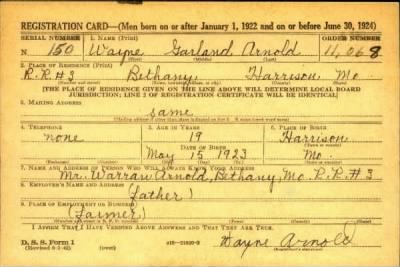 REGISTRATION CARD—(Men born on or after January 1, 1922 and on or before June 30, 1924)
SERIAL NUMBER 1. NAME (Print) ORDER NUMBER
N. 150 Wayne Garland Arnold 11,068
(First) (Middle) (Last)
2. PLACE OF RESIDENCE (Print)
R.R.#3 Bethany Harrison Mo.
(Number and street) (Town, township, village, or city) (County) (State)
[THE PLACE OF RESIDENCE GIVEN ON THE LINE ABOVE WILL DETERMINE LOCAL BOARD
JURISDICTION; LINE 2 OF REGISTRATION CERTIFICATE WILL BE IDENTICAL]
3. MAILING ADDRESS
same
[Mailing address if other than place indicated on line 2. If same, insert word same]
4. TELEPHONE 5. AGE IN YEARS 6. PLACE OF BIRTH
none 19 Harrison
DATE OF BIRTH
May 15 1923 Mo.
7. NAME AND ADDRESS OF PERSON WHO WILL ALWAYS KNOW YOUR ADDRESS
Mr. Warran Arnold, Bethany, Mo. R.R.#3
8. EMPLOYER'S NAME AND ADDRESS
(Father)
9. PLACE OF EMPLOYMENT OR BUSINESS
(Farmer)
(Number and street or R. F. D. number) (Town) (County) (State)
I AFFIRM THAT I HAVE VERIFIED ABOVE ANSWERS AND THAT THEY ARE TRUE.
D. S. S. Form 1
(Revised 6-9-42) Wayne Arnold